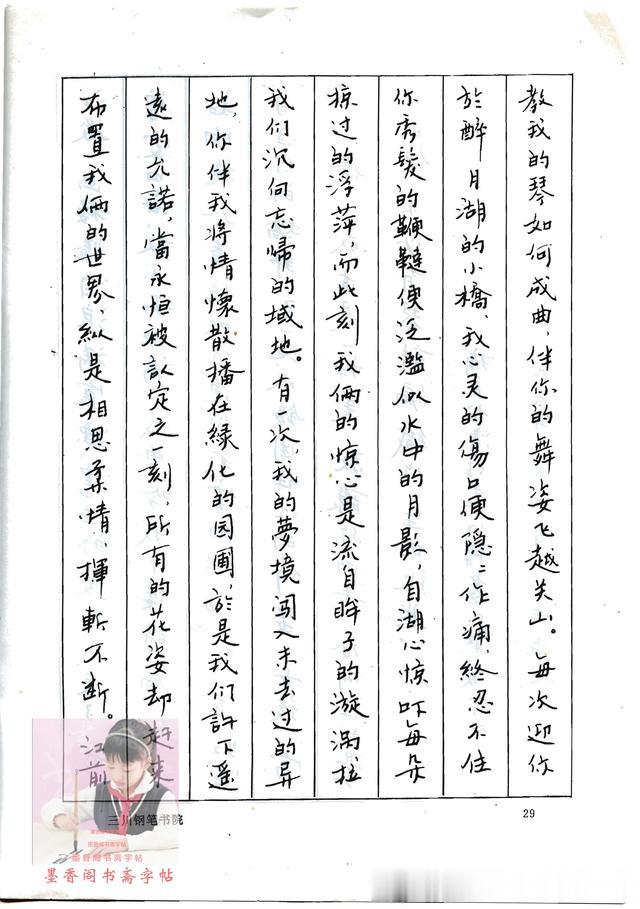 教我的琴如何成曲，伴你的舞姿飞越关山。每次迎你
於醉月湖的小橋，我心灵的傷口便隐隐作痛，終忍不住
你秀髮的鞭韃便泛濫似水中的月影，自湖心惊吓每朵
掠过的浮萍，而此刻我俩的惊心是流自眸子的漩涡拉
我们沉向忘歸的域地。有一次，我的夢境闯入未去过的异
地，你伴我将情懷散播在緑化的园圃，於是我们許下遥
遠的允諾，當永恒被訂定之一刻，所有的花姿却赶来
布置我俩的世界，纵是相思柔情，揮斬不断。江前
三川钢笔书院
29
墨香阁书斋字帖
墨香阁书斋字帖